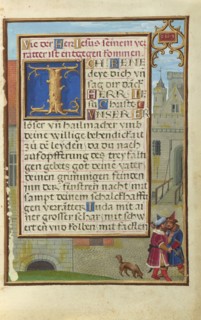 Wie der Herr Jesus seinem ver
ratter ist entgegen kommen.
ICH BENE
deye dich vn
sag dir danck
HERR IE
su Christe
VNSER ER
löser vn hailmacher vmb
deine willige behendickait
zů de leyden da du nach
auffopfferung des treyfalti
gen gebets got deine vater
deinen grimmigen feinden
jnn der finstren nacht mit
sampt deinem schalckhaffti
gen verräter Juda mit ai
ner grosser schar mit schw
erten vnd kolben mit facklen